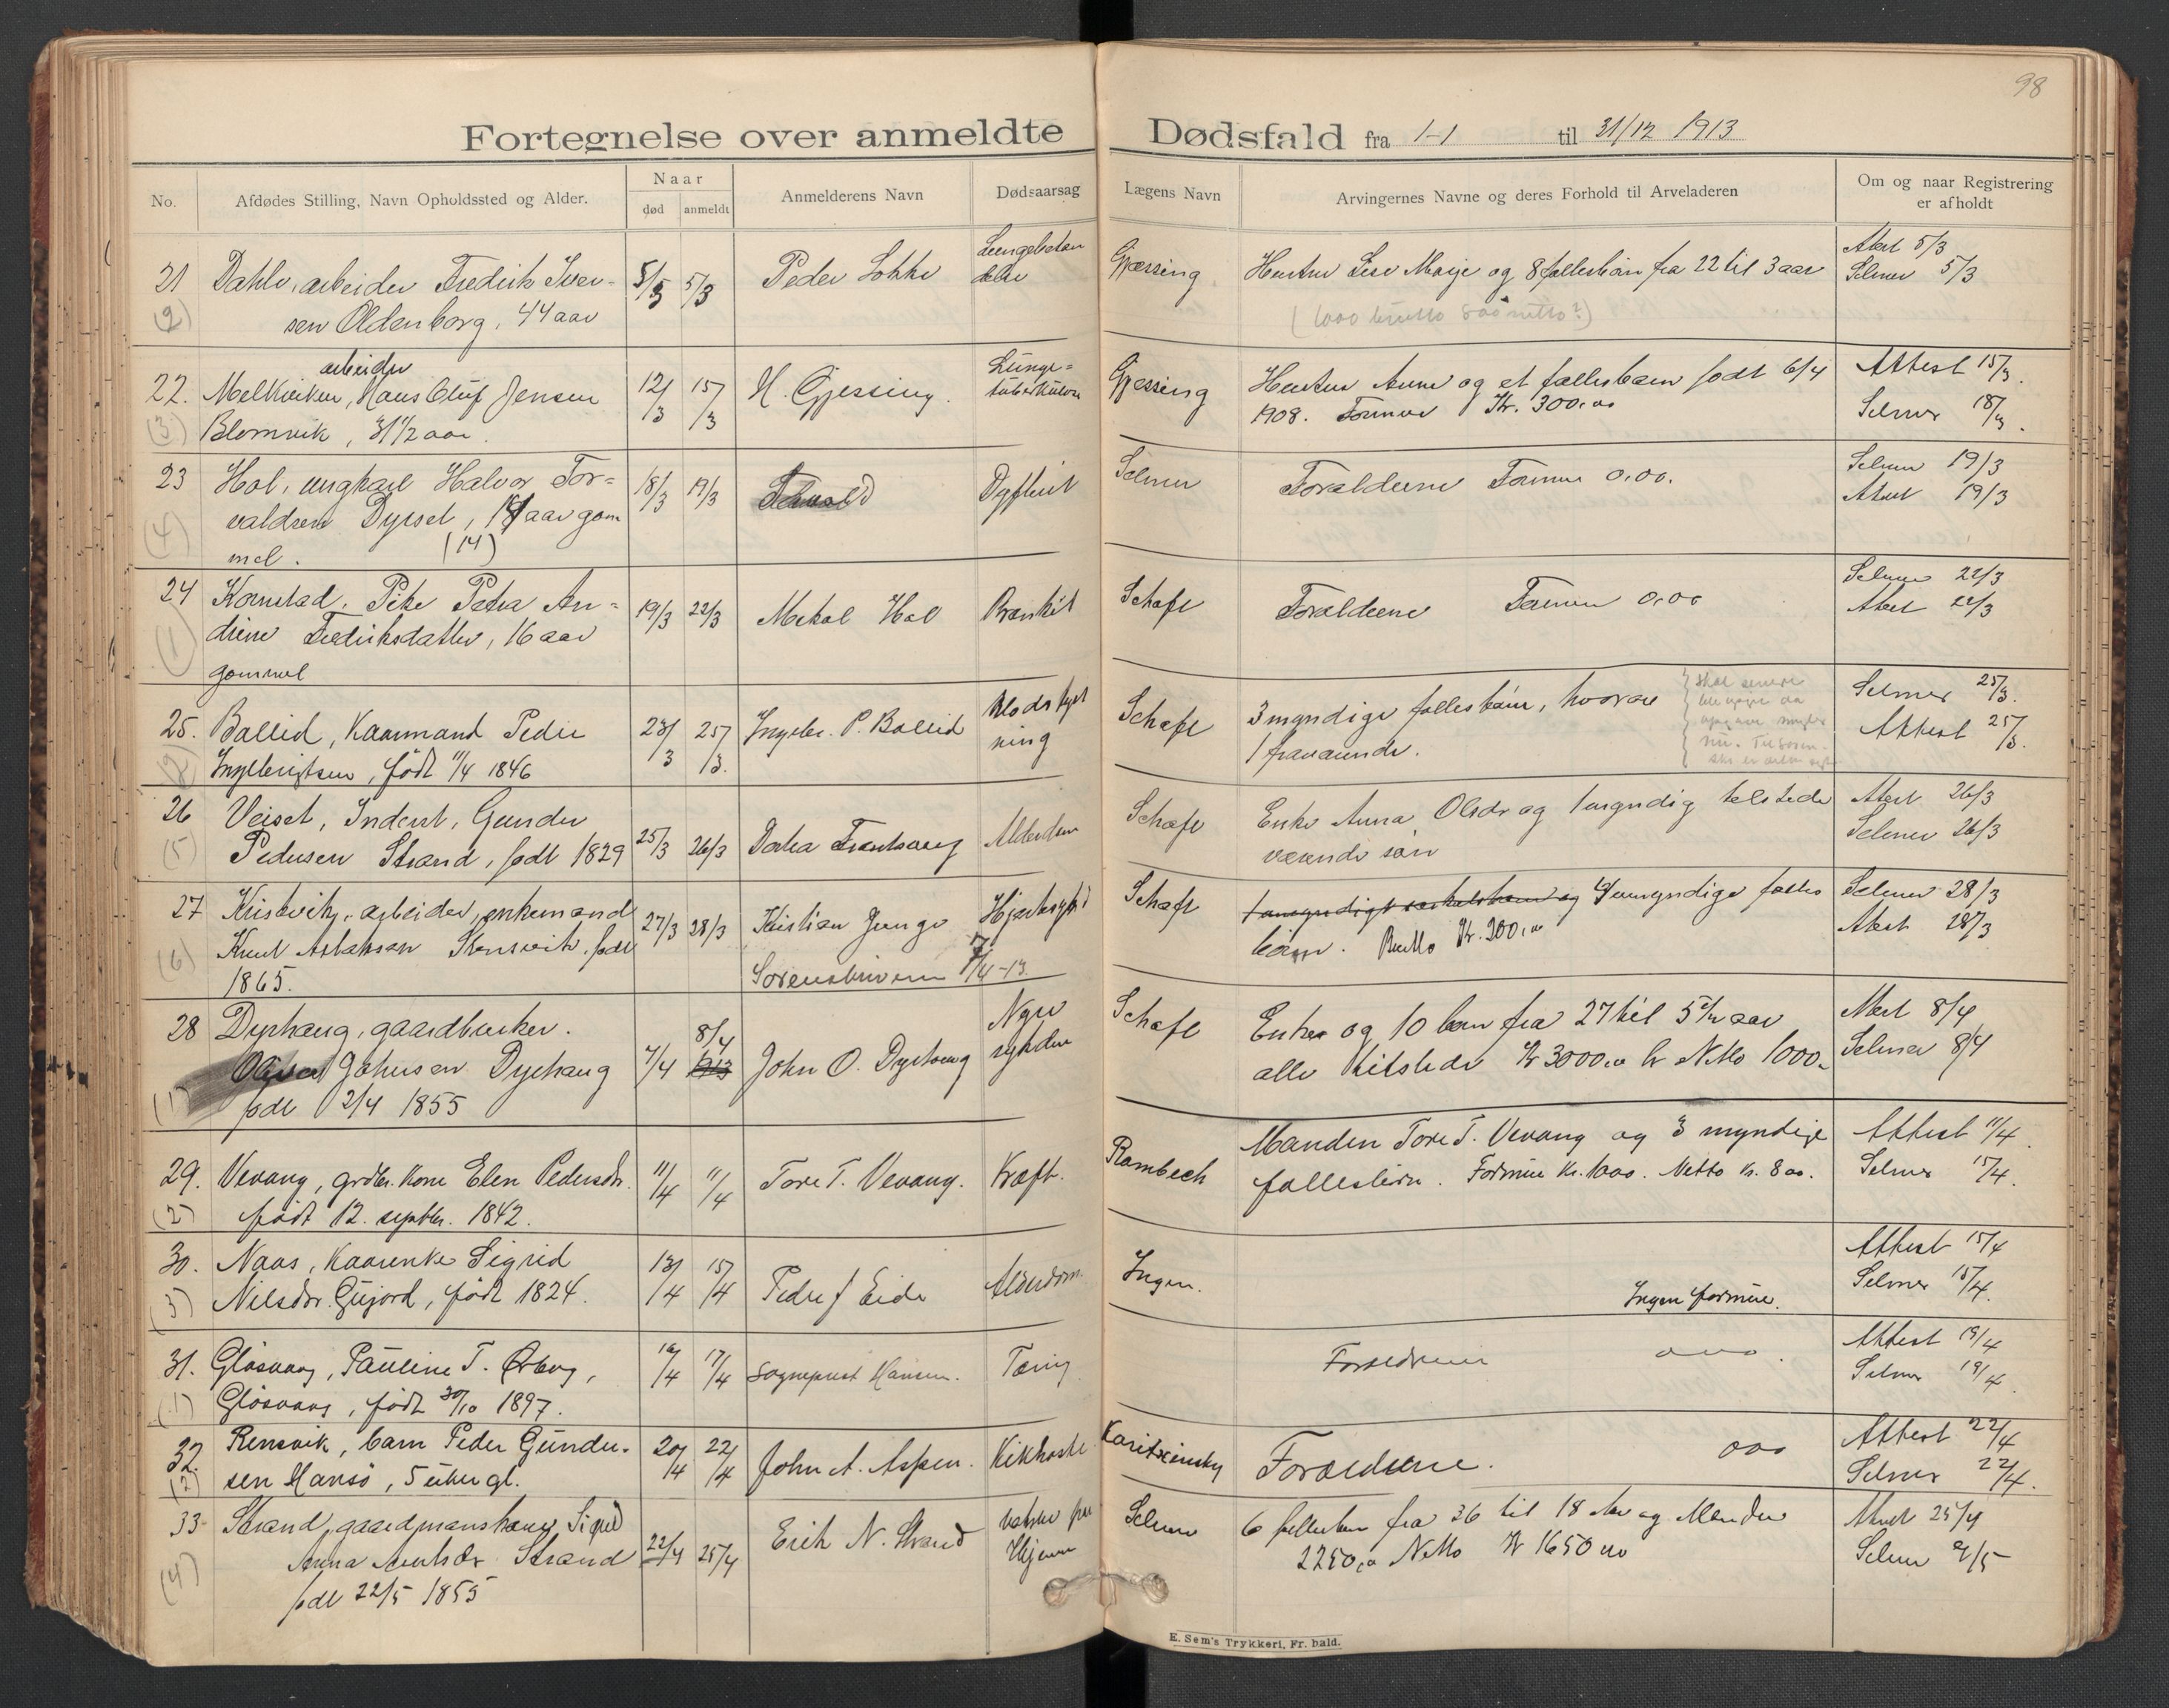 98
Fortegnelse over anmeldte Dødsfald fra 1-1 til 31/12 1913
No.
Afdødes Stilling, Navn Opholdssted og Alder.
Naar
død anmeldt
Anmelderens Navn
Dødsaarsag
Lægens Navn
Arvingernes Navne og deres Forhold til Arveladeren
Om og naar Registrering
er afholdt
21
(2)
Dahle, arbeider Fredrik Iver-
sen Oldenborg, 44 aar
5/3 5/3
Peder Lokke
Gjessing
Hustru Lise Marje og 8 fællesbørn fra 22 til 3 aar
(1000 brutto 800 netto?)
Attest 5/3
Selmer 5/3
22.
(3)
arbeider
Melkviken, Hans Oluf Jensen
Blomvik, 31 1/2 aar.
12/3 15/3
H. Gjessing.
Lunge-
tuberkulose
Gjessing
Hustru Anne og et fællesbarn født 6/4
1908. Formue Kr. 300.00
Attest 15/3.
Selmer 18/3.
23
(4)
Hol, ungkarl Halvor Tor-
valdsen Dyrset, aar gam
mel. (14)
18/3 19/3
Selmer
Forældrene Formue 0.00.
Selmer 19/3
Attest 19/3
24
(1)
Kornstad. Pike Petra An-
drine Fredriksdatter, 16 aar
gammel
19/3 22/3
Mekal Hol
Schøfl
Forældrene Formue 0.00
Selmer 22/3
Attest 22/3
25.
Bollid, Kaarmand Peder
Ingebrigtsen, født 11/4 1846
23/3 25/3.
Ingebr. P. Bollid
Blodstyrt
ning
Schøfl
3 myndige fællesbørn, hvorav
1 fraværende.
Selmer 25/3.
Attest 25/3.
26
(5)
Veiset, Inderst, Gunder
Pedersen Strand, født 1829
25/3 26/3
Alderdom
Schøfl
Enke Anna Olsdr og 1 myndig tilstede
værende søn
Attest 26/3
Selmer 26/3
27
(6)
Kristvik, arbeider, enkemand
Knut Aslaksen Stensvik, født
1865.
27/3 28/3
Kristian Junge
Sorenskriveren 7/4-13.
Schøfl
umyndige fælles
børn. Brutto Kr. 200.00
Selmer 28/3
Attest 28/3
28
(1)
Dyrhaug, gaardbruker.
Johnsen Dyrhaug
født 12/4 1855
7/4 8/4
John O. Dyrhaug
Nyre
sykdom
Schøfl
Enke og 10 børn fra 27 til 5 1/2 aar
alle tilstede Kr 3000.00 br Netto 1000.
Attest 8/4
Selmer 8/4
29.
(2)
Vevang, grdbr. kone Elen Pedersdr.
født 12. septbr. 1842.
11/4 11/4
Tore T. Vevang.
Kræft.
Rambech
Manden Tore T. Vevang og 3 myndige
fællesbørn. Formue Kr. 1000. Netto Kr. 800.
Attest 11/4.
Selmer 15/4.
30.
(3)
Naas, Kaarenke Sigrid
Nilsdr. Gujord, født 1824.
13/4 15/4
Peder J Eide
Alderdom.
Ingen.
Ingen formue.
Attest 15/4
Selmer 15/4.
31.
(1)
Glosvaag, Pauline T. Ørbog,
Glosvaag, født 30/10 1897.
16/4 17/4
Sogneprest Hansen.
Tæring
Forældrene 000.
Attest 19/4
Selmer 19/4.
32.
(2)
Rensvik, barn Peder Gunder-
sen Hansø, 5 uker gl.
20/4 22/4
John A. Aspen.
Kikhoste
Koritzinsky
Forældrene. 000
Attest 22/4
Selmer 22/4.
33.
(4)
Strand, gaardmanskone Sigrid
Anna Arntsdr. Strand
født 22/5 1855
22/4 25/4
Erik N. Strand
Selmer
6 fællesbørn fra 36 til 18 Aar og Manden
2250.00 Netto Kr 1650.00
Attest 25/4
Selmer 2/5
E. Sem's Trykkeri, Fr. hald.